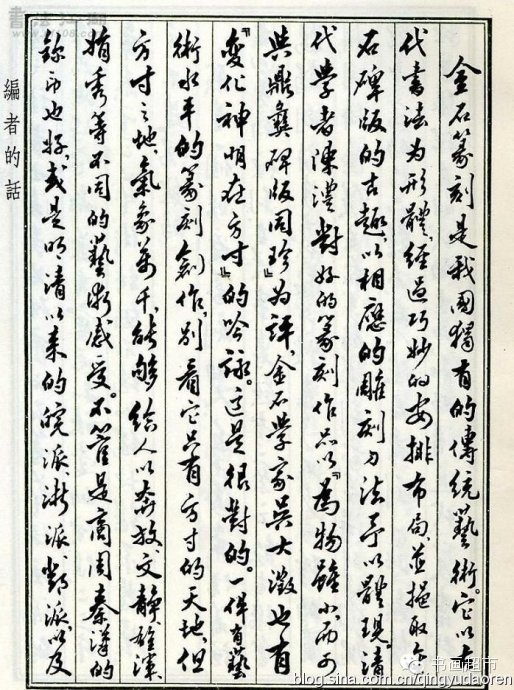 金石篆刻是我國獨有的傳統藝術。它以古
代書法为形體，經過巧妙的安排布局，並攝取金
石碑版的古趣，以相應的雕刻刀法予以體現。清
代學者陳澧對好的篆刻作品以『為物雖小，而可
與鼎彝碑版同珍』为評，金石學家吳大澂也有
『變化神明在方寸』的吟詠。這是很對的。一件有藝
術水平的篆刻創作，别看它只有方寸的天地，但
方寸之地，氣象萬千，能够给人以奔放、文静、雄渾、
娟秀等不同的藝術感受。不管是商周秦漢的
鉨印也好，或是明清以来的皖派浙派鄧派，以及
編者的話
书画超市
blog.sina.com.cn/qingyudaoren